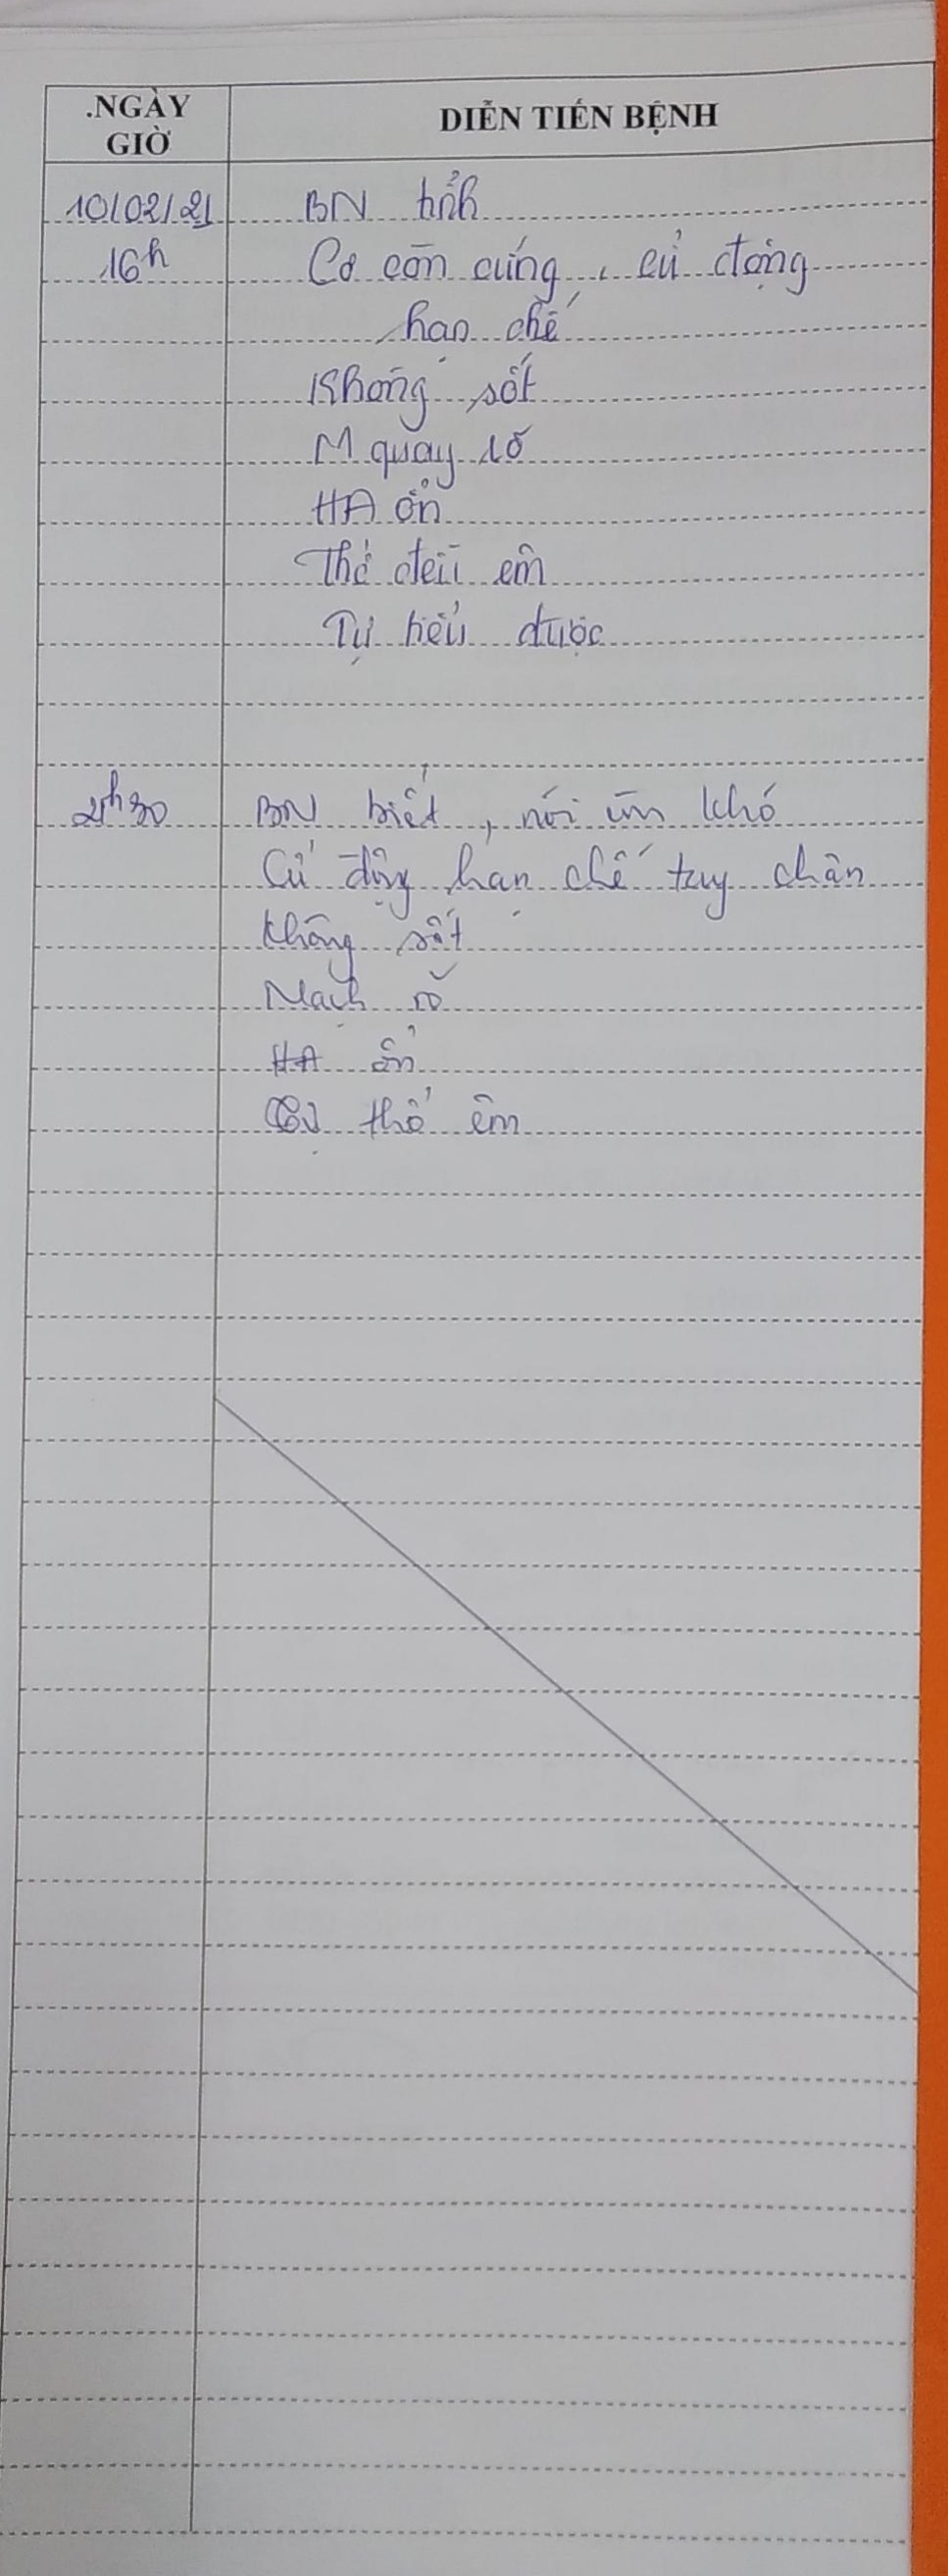 .NGÀY GIỜ
DIỄN TIẾN BỆNH
10/02/21 BN tỉnh
16h Cơ còn cứng, cử động
hạn chế
Không sốt
M quay rõ
HA ổn
Thở đều êm
Tự tiểu được
21h30 BN biết, nói khó
Cử động hạn chế tay chân
Không sốt
Mạch rõ
HA ổn
thở êm